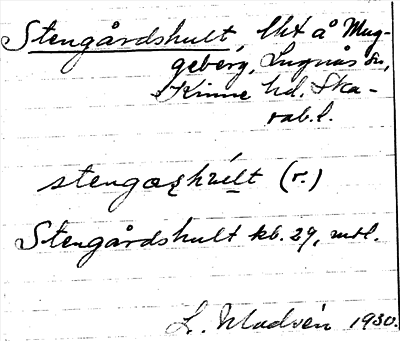 Stengårdshult, lht å Mug-
geberg, Lugnås sn,
Kinne hd. Ska-
rab.l.
(r.)
Stengårdshult kb. 29, mtl.
L. Modvén 1930.